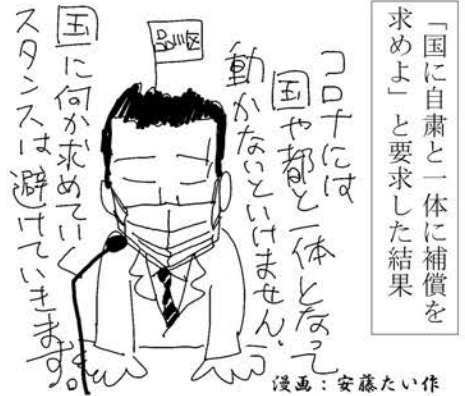 「国に自粛と一体に補償を
求めよ」と要求した結果
コロナには
国や都と一体となって
動かないといけません。
国に何か求めていく
スタンスは避けていきます。
品川区
漫画：安藤たい作